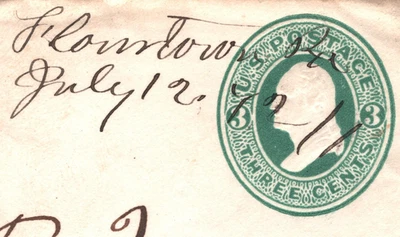 Flourtown Pa
July 12.
U.S. POSTAGE
3 3
THREE CENTS